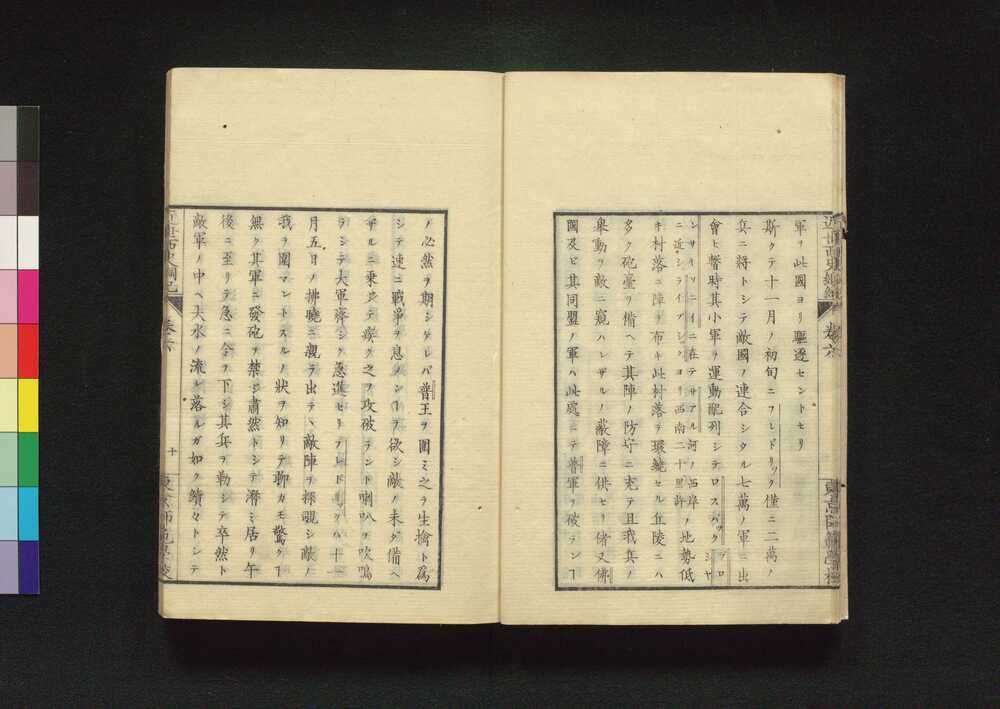 軍ヲ此國ヨリ驅逐セントセリ
斯クテ十一月ノ初旬ニフレドリック僅ニ二萬ノ
兵ニ將トシテ敵國ノ連合シタル七萬ノ軍ニ出
會ヒ暫時其小軍ヲ運動配列シテロスバック
ニ在テサアル河ノ西岸
西南二十里許ノ地勢低
キ村落ニ陣ヲ布キ此村落ヲ環繞セル丘陵ニハ
多ク砲臺ヲ備ヘテ其陣ノ防守ニ充テ且我兵ノ
舉動ヲ敵ニ窺ハレザルノ蔽障ニ供セリ偖又佛
國及ビ其同盟ノ軍ハ此處ニテ普軍ヲ破テンヿ
ノ必然ヲ期シケレバ普王ヲ圍ミ之ヲ生擒ト爲
シテ速ニ戰爭ヲ息メンヿヲ欲シ敵ノ未ダ備ヘ
ザルニ乘ジテ疾ク之ヲ攻破ラント喇叭ヲ吹鳴
ラシテ大軍齊シク急進セリフレドリックハ十一
月五日ノ拂曉ニ親ラ出テヽ敵陣ヲ探覗シ敵ノ
我ヲ圍マントスルノ狀ヲ知リテ聊カモ驚ク
無ク其軍ニ發砲ヲ禁ジ肅然トシテ潛ミ居リ午
後ニ至リテ急ニ令ヲ下シ其兵ヲ勒シテ卒然ト
敵軍ノ中ヘ大水ノ流レ落ルガ如ク續々トシテ
近世西史綱紀
卷六
十